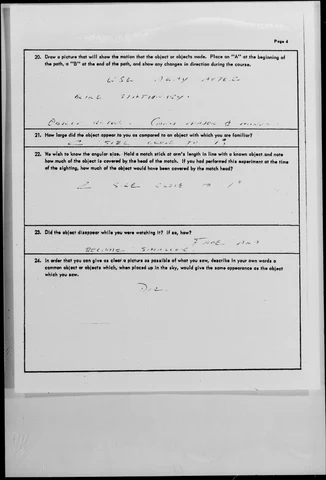 Page 4
20. Draw a picture that will show the motion that the object or objects made. Place an "A" at the beginning of
the path, a "B" at the end of the path, and show any changes in direction during the course.
21. How large did the object appear to you as compared to an object with which you are familiar?
SIZE CLOSE TO 1°
22. We wish to know the angular size. Hold a match stick at arm's length in line with a known object and note
how much of the object is covered by the head of the match. If you had performed this experiment at the time
of the sighting, how much of the object would have been covered by the match head?
SIZE CLOSE 1°
23. Did the object disappear while you were watching it? If so, how?
FADE AND
BECOME SMALLER
24. In order that you can give as clear a picture as possible of what you saw, describe in your own words a
common object or objects which, when placed up in the sky, would give the same appearance as the object
which you saw.